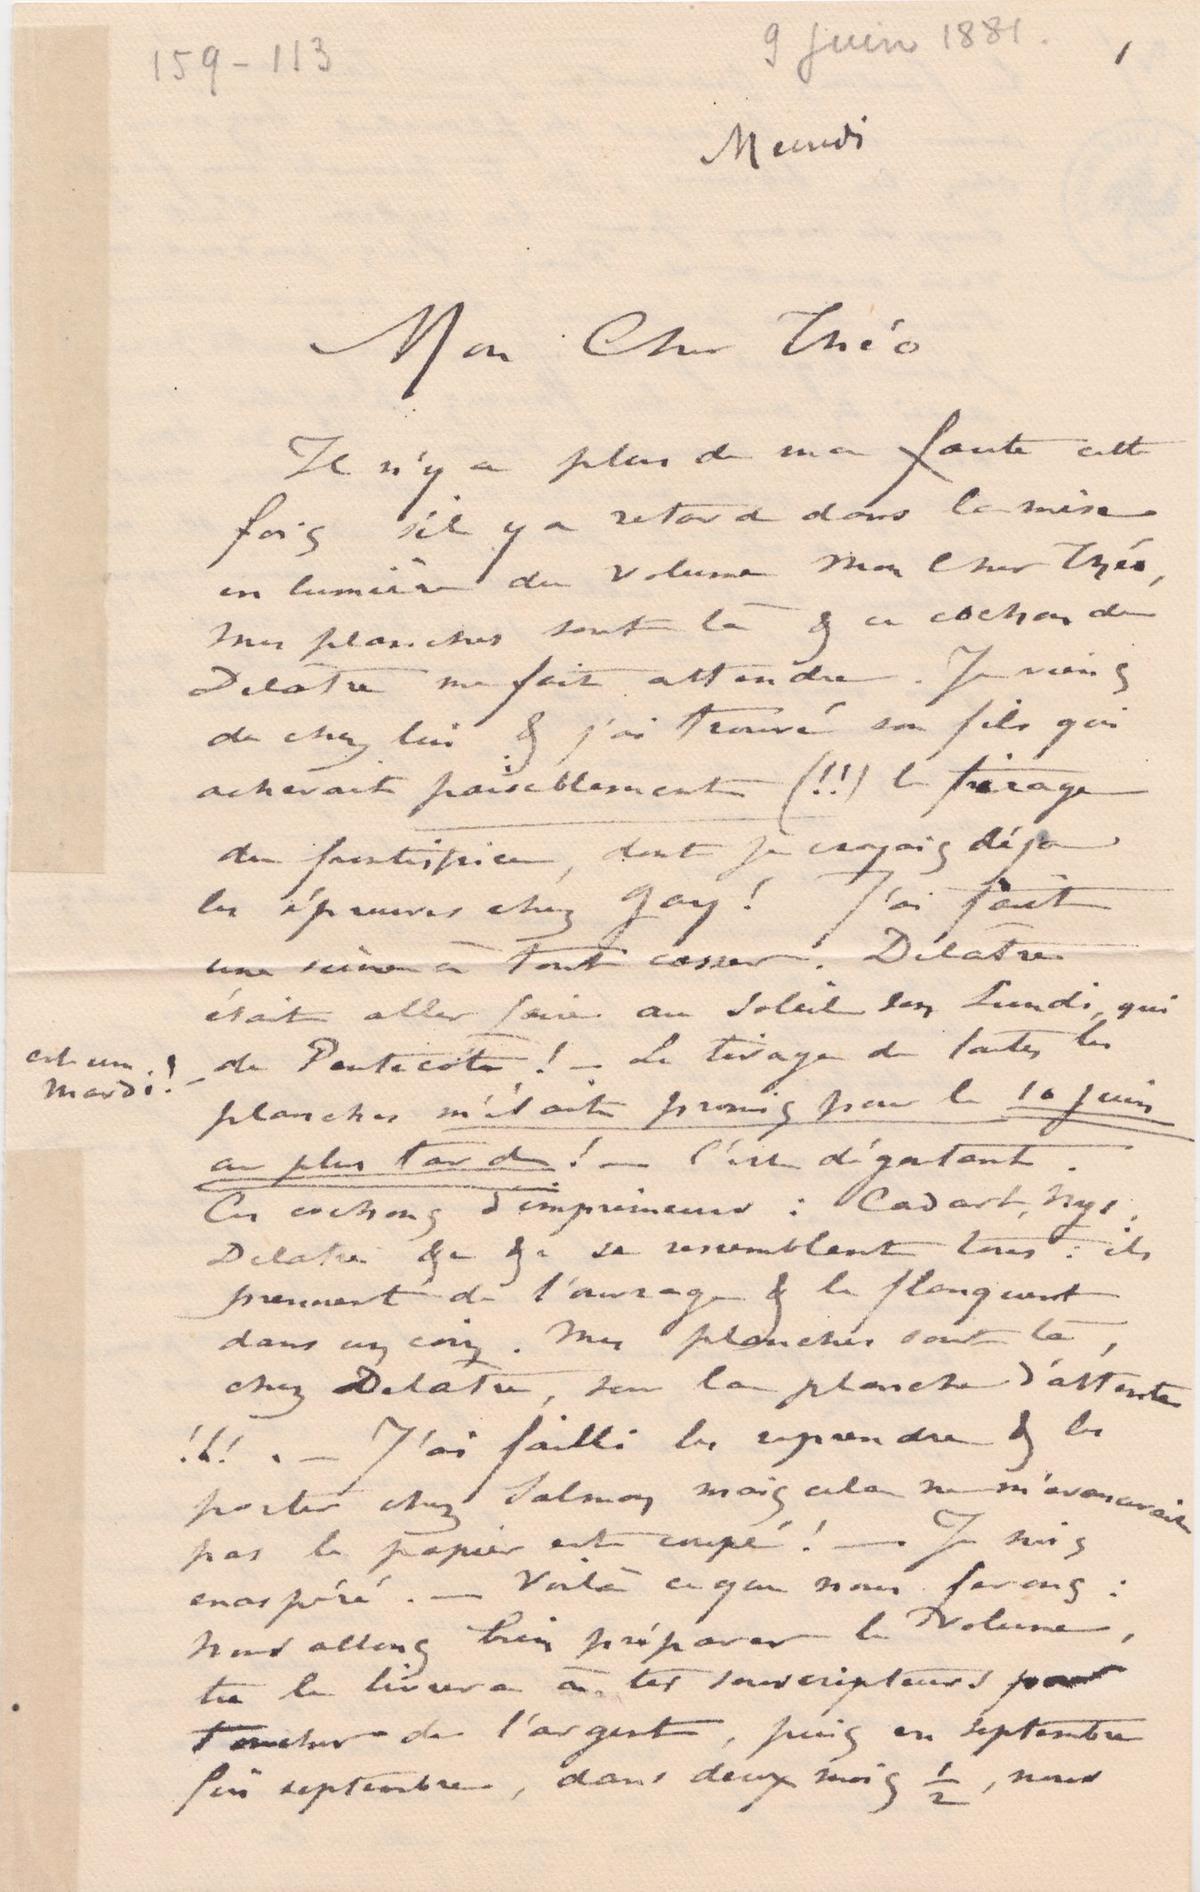 159-113
9 juin 1881.
1
Mon Cher Théo
Il n'y a plus de ma faute cette
fois s'il y a retard dans la mise
en lumière du volume mon Cher Théo,
mes planches sont là & ce cochon de
Delâtre me fait attendre. Je viens
de chez lui & j'ai trouvé son fils qui
achevait paisiblement (!!) le tirage
du frontispice, dont je croyais déjà
les épreuves chez Gay! J'ai fait
une scène à tout casser. Delâtre
était aller faire au Soleil son Lundi, qui
est un
mardi!
de Pentecôte! — Le tirage de toutes les
planches m'était promis pour le 10 juin
au plus tard! — C'est dégoutant.
Ces cochons d'imprimeurs : Cadart, Nys,
Delatre &c &c se ressemblent tous : ils
prennent de l'ouvrage & le flanquent
dans un coin. Mes planches sont là,
chez Delatre, sur la planche d'attente
!!! . — J'ai failli les reprendre & les
porter chez Salmon mais cela ne m'avancerait
pas le papier est coupé! — Je suis
exaspéré. — Voilà ce que nous ferons :
Nous allons bien préparer le Volume,
tu le livrera à tes souscripteurs pour
toucher de l'argent, puis en septembre
fin septembre, dans deux mois 1/2, nous